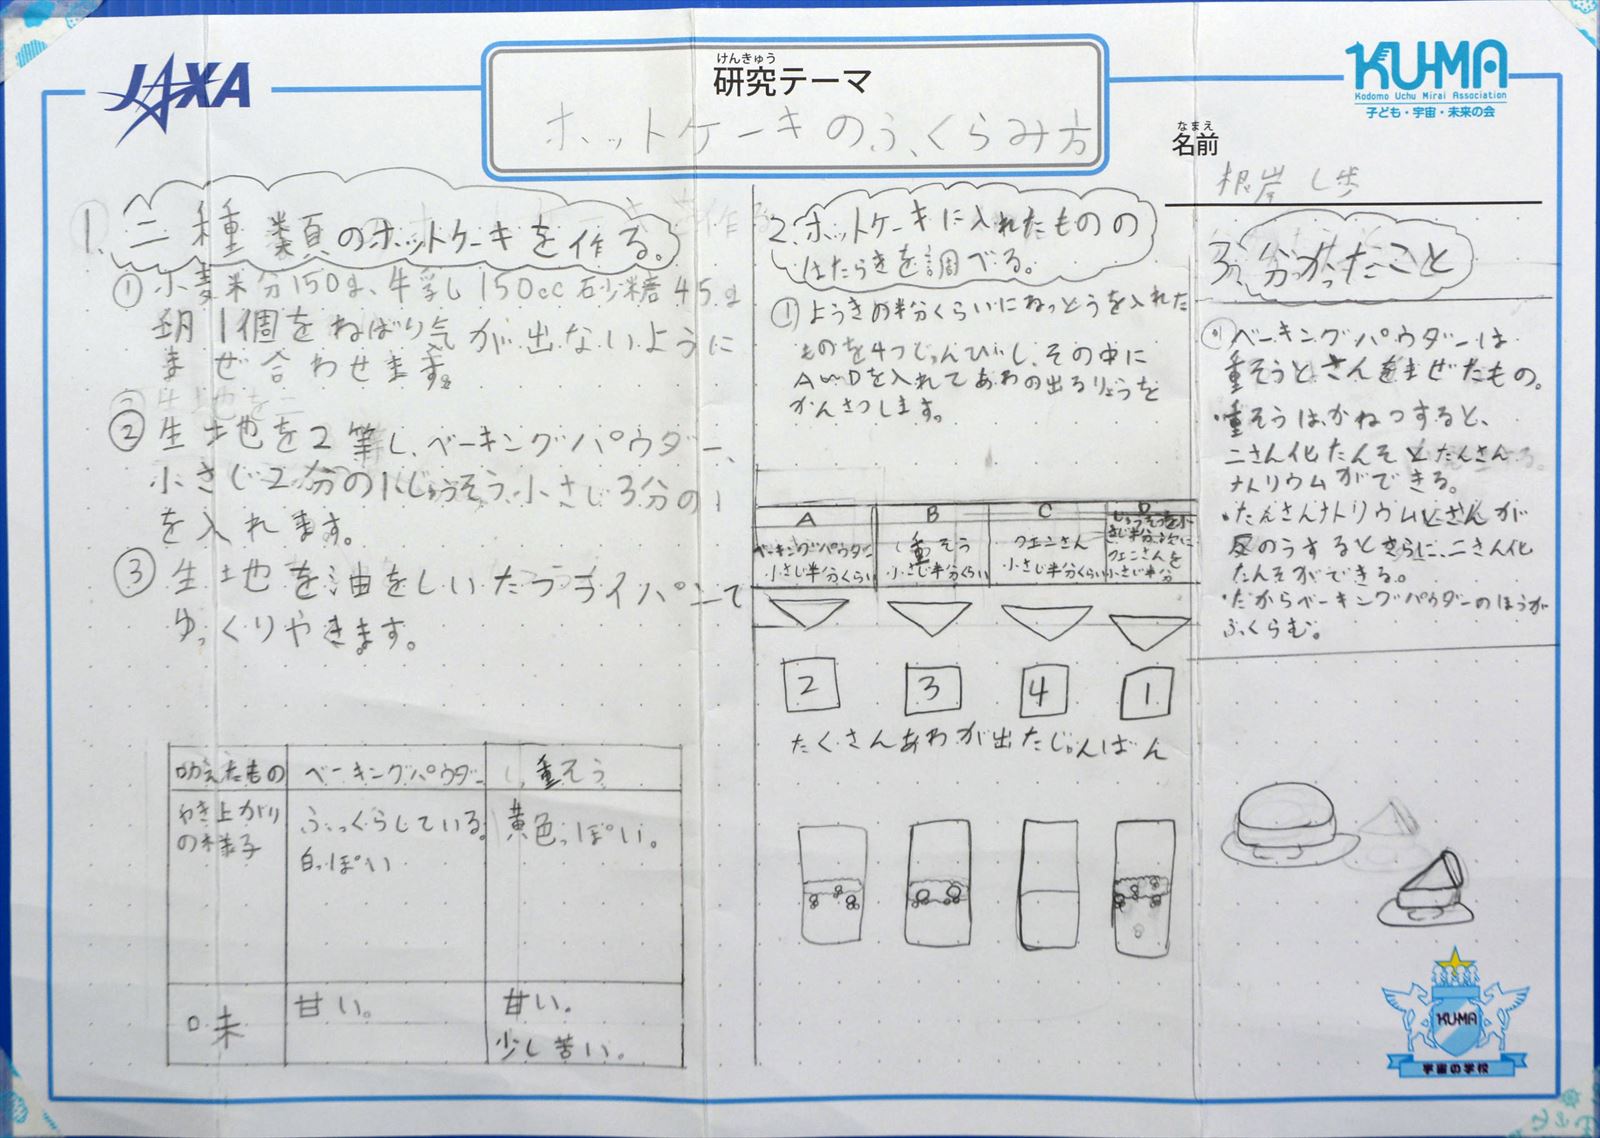 JAXA
けんきゅう
研究テーマ
ホットケーキのふくらみ方
KU-MA
Kodomo Uchu Mirai Association
子ども・宇宙・未来の会
なまえ
名前
根岸 し歩
1. 二種類のホットケーキを作る。
① 小麦粉150g、牛乳し150cc砂糖45g
卵1個をねばり気が出ないように
まぜ合わせます。
② 生土地を2等し、ベーキングパウダー、
小さじ2分の1じゅうそう、小さじ3分の1
を入れます。
③ 生土地を油をしいたフライパンで
ゆっくりやきます。
加えたもの ベーキングパウダー 重そう
やき上がり ふっくらしている。 黄色っぽい。
の様子 白っぽい
味 甘い。 甘い。
少し苦い。
2. ホットケーキに入れたものの
はたらきを調べる。
① ようきの半分くらいにねっとうを入れた
ものを4つじゅんびし、その中に
A〜Dを入れてあわの出るりょうを
かんさつします。
A B C D
ベーキングパウダー 小さじ半分くらい
重そう 小さじ半分くらい
クエンさん 小さじ半分くらい
じゅうそうを小さじ半分、次にクエンさんを小さじ半分
2 3 4 1
たくさんあわが出たじゅんばん
3. 分かったこと
ベーキングパウダーは
重そうとさんをまぜたもの。
・重そうは、かねつすると、
二さん化たんそとたんさん
ナトリウムができる。
・たんさんナトリウムとさんが
反のうするとさらに、二さん化
たんそができる。
・だからベーキングパウダーのほうが
ふくらむ。
KU-MA
宇宙の学校